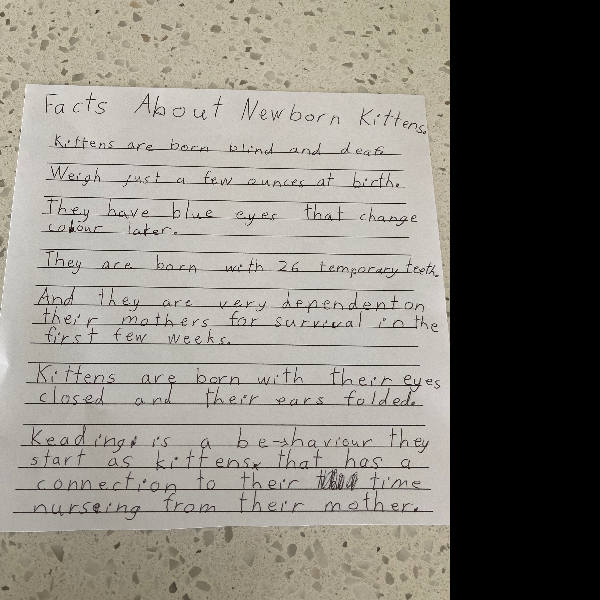 Facts About Newborn Kittens.
Kittens are born blind and deaf
Weigh just a few ounces at birth.
They have blue eyes that change
colour later.
They are born with 26 temporary teeth.
And they are very dependent on
their mothers for survival in the
first few weeks.
Kittens are born with their eyes
closed and their ears folded.
Keading is a be-haviour they
start as kittens that has a
connection to their time
nurseing from their mother.